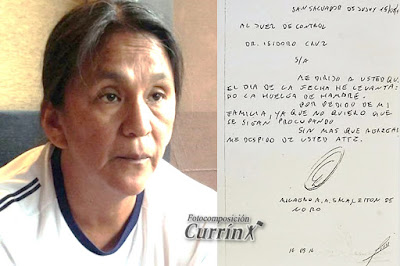 SAN SALVADOR DE JUJUY
AL JUEZ DE CONTROL
DR. ISIDORO CRUZ
S/A
ME DIRIJO A USTED QUE
EL DIA DE LA FECHA HE LEVANTA-
DO LA HUELGA DE HAMBRE.
POR PEDIDO DE MI
FAMILIA, YA QUE NO QUIERO QUE
SE SIGAN PREOCUPANDO
SIN MAS QUE AGREGAR
ME DESPIDO DE USTED ATTE.
MILAGRO A. A. SALA
Fotocomposición
CurrínX